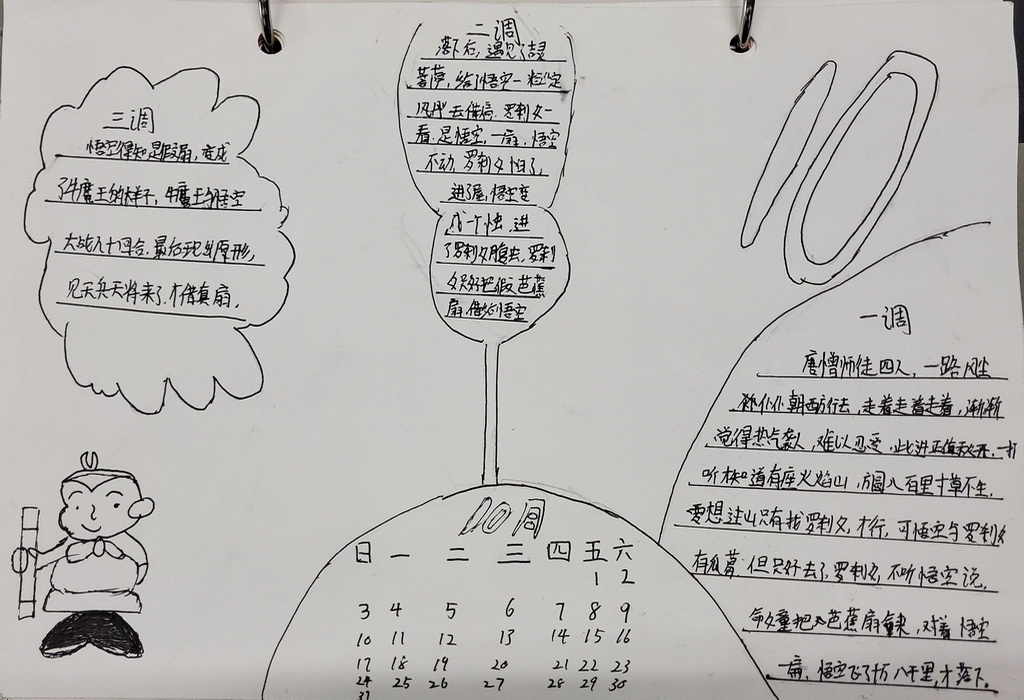 三调
悟空得知是假扇,变成
了牛魔王的样子,牛魔王与悟空
大战八十回合,最后现出原形,
见天兵天将来了,才借真扇。
二调
落下后,遇见了灵吉
菩萨,给了悟空一粒定
风丹去借扇,罗刹女一
看,是悟空,一扇,悟空
不动,罗刹女怕了,
进了屋,悟空变
成一个虫,进
了罗刹女腹去,罗刹
女只好把假芭蕉
扇借给悟空
10
一调
唐憎师徒四人,一路风尘
仆仆朝西方行去,走着走着走着,渐渐
觉得热气袭人,难以忍受,此进正值秋天,一打
听才知道有座火焰山,方圆八百里寸草不生,
要想过山只有找罗刹女,才行,可悟空与罗刹女
有仇,但只好去了,罗刹女,不听悟空说,
命女童把芭蕉扇拿来,对着悟空
一扇,悟空飞了十万八千里,才落下。
10周
日 一 二 三 四 五 六
1 2
3 4 5 6 7 8 9
10 11 12 13 14 15 16
17 18 19 20 21 22 23
24 25 26 27 28 29 30
31